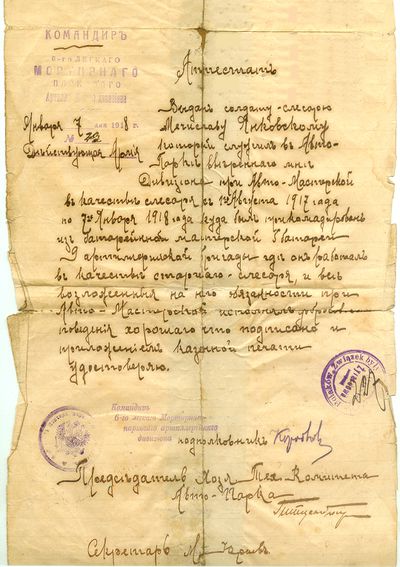 КОМАНДИРЪ
6-го ЛЕГКАГО
МОРТИРНАГО
Аттестатъ
Января 7 дня 1918
№
Дѣйствующая Армія
Выданъ солдату-слесарю
Мечиславу Янковскому
который служилъ въ Авто-
Паркѣ ввѣреннаго мнѣ
Дивизіона при Авто-Мастерской
въ качествѣ слесаря съ 1го Августа 1917 года
по 7ое Января 1918 года куда былъ прикомандированъ
изъ батарейной мастерской батареи
артиллерійской бригады гдѣ онъ работалъ
въ качествѣ старшаго-слесаря, и всѣ
возложенныя на него обязанности при
Авто-Мастерской исполнялъ
поведенія хорошаго что подписано и
приложеніемъ казенной печати
удостовѣряю.
Командиръ
6-го легкаго Мортирнаго
паркового артиллерійскаго
дивизіона
подполковникъ
Związek
Предсѣдатель Хозя Тех. Комитета
Авто-Парка
Секретарь М.